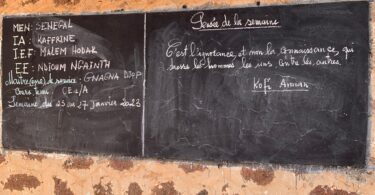 MEN: SENEGAL
IA: KAFFRINE
IEF MALEM HODAR
EE: NDIOUM NGAINTH
Maître(sse) de service: GNAGNA DIOP
Cours tenu: CE1/A
Semaine du 23 au 27 Janvier 2023
Pensée de la semaine
C'est l'ignorance, et non la connaissance, qui
dresse les hommes les uns contre les autres.
Kofi Annan